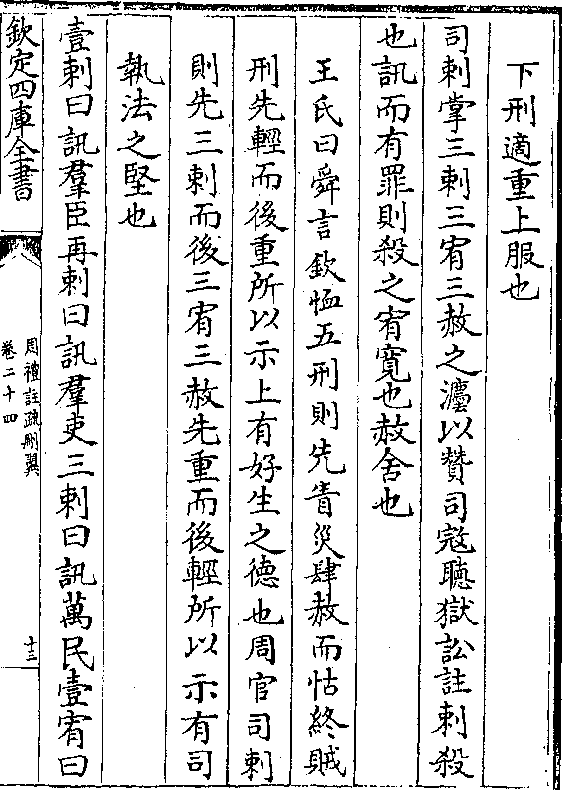 下刑適重上服也
司刺掌三刺三宥三赦之灋以贊司寇聽獄訟註刺殺
也訊而有罪則殺之宥寬也赦舍也
王氏曰舜言欽恤五刑則先眚災肆赦而怙終賊
刑先輕而後重所以示上有好生之德也周官司刺
則先三刺而後三宥三赦先重而後輕所以示有司
執法之堅也
壹刺曰訊羣臣再刺曰訊羣吏三刺曰訊萬民壹宥曰
欽定四庫全書
周禮註疏刪翼
卷二十四
十三